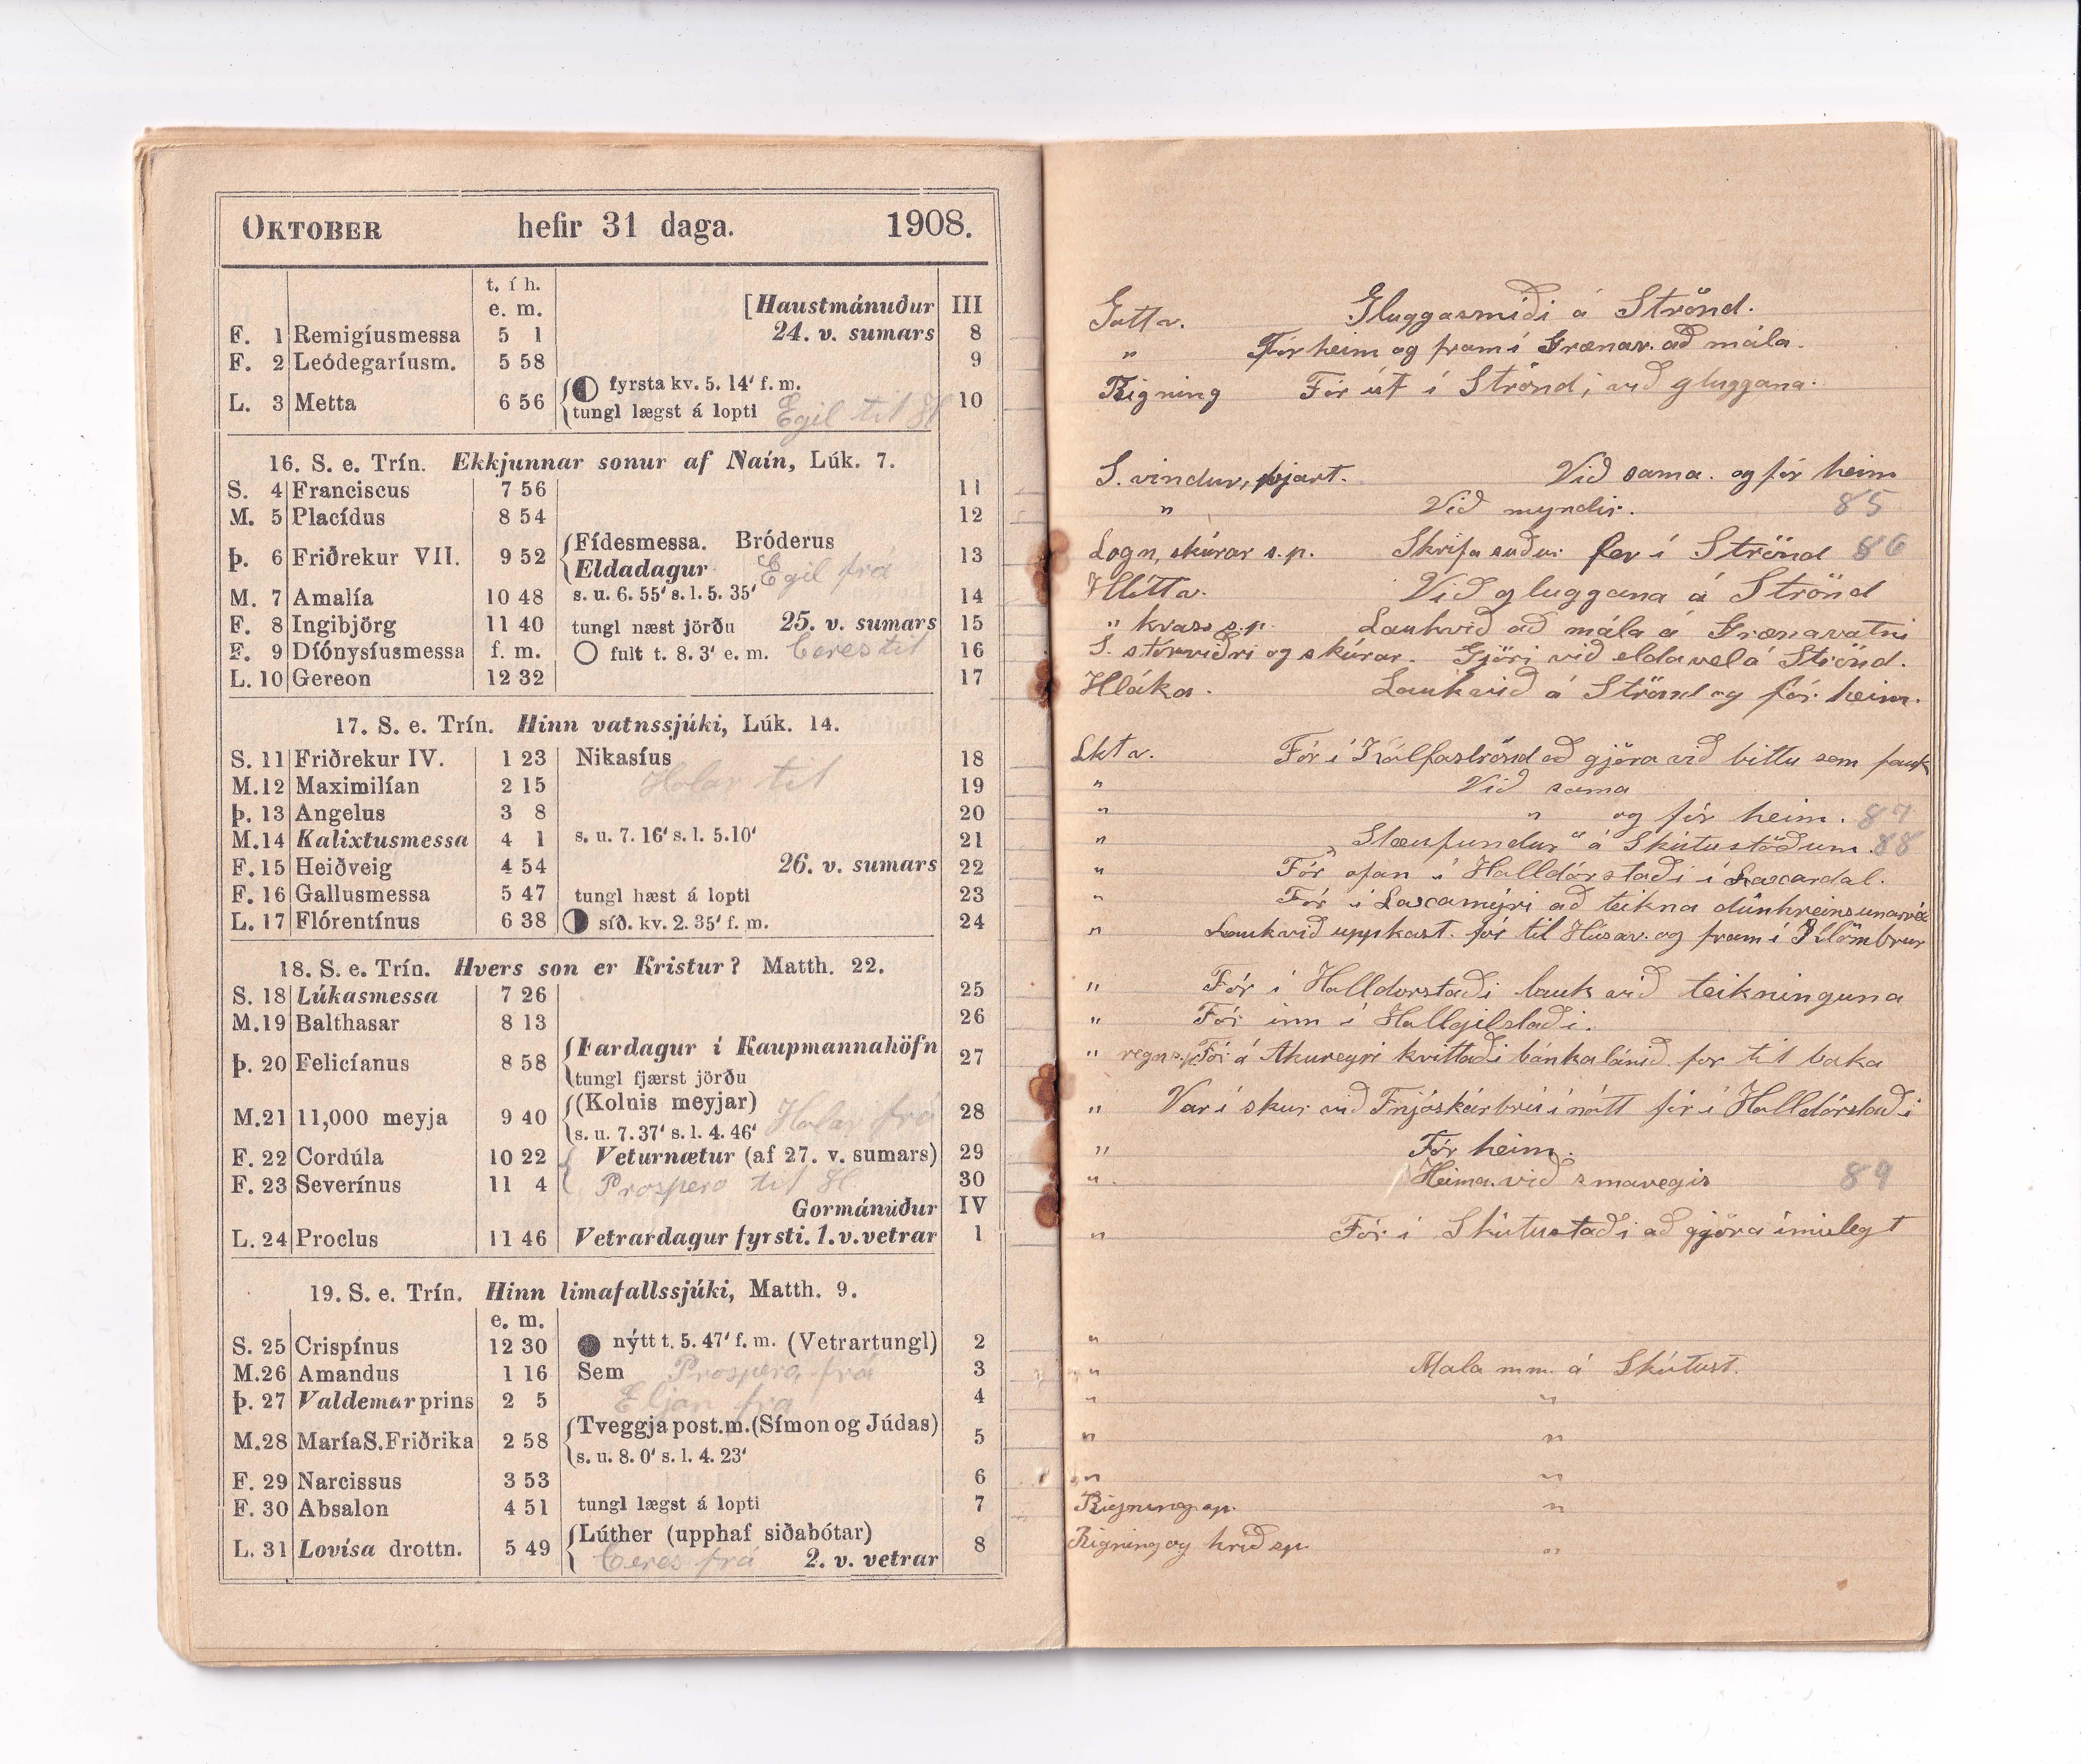 OKTOBER hefir 31 daga. 1908.
t. í h.
e. m. [Haustmánuður III
F. 1 Remigíusmessa 5 1 24. v. sumars 8
F. 2 Leódegaríusm. 5 58 9
L. 3 Metta 6 56 fyrsta kv. 5. 14' f. m. 10
tungl lægst á lopti Egil til
16. S. e. Trín. Ekkjunnar sonur af Naín, Lúk. 7.
S. 4 Franciscus 7 56 11
M. 5 Placídus 8 54 12
Þ. 6 Friðrekur VII. 9 52 Fídesmessa. Bróderus 13
Eldadagur Egil frá
M. 7 Amalía 10 48 s. u. 6. 55' s. l. 5. 35' 14
F. 8 Ingibjörg 11 40 tungl næst jörðu 25. v. sumars 15
F. 9 Díónysíusmessa f. m. fult t. 8. 3' e. m. Ceres til 16
L. 10 Gereon 12 32 17
17. S. e. Trín. Hinn vatnssjúki, Lúk. 14.
S. 11 Friðrekur IV. 1 23 Nikasíus 18
M. 12 Maximilían 2 15 Holar til 19
Þ. 13 Angelus 3 8 20
M. 14 Kalixtusmessa 4 1 s. u. 7. 16' s. l. 5. 10' 21
F. 15 Heiðveig 4 54 26. v. sumars 22
F. 16 Gallusmessa 5 47 tungl hæst á lopti 23
L. 17 Flórentínus 6 38 síð. kv. 2. 35' f. m. 24
18. S. e. Trín. Hvers son er Kristur? Matth. 22.
S. 18 Lúkasmessa 7 26 25
M. 19 Balthasar 8 13 26
Þ. 20 Felicíanus 8 58 Fardagur í Kaupmannahöfn 27
tungl fjærst jörðu
M. 21 11,000 meyja 9 40 (Kolnis meyjar) Holar frá 28
s. u. 7. 37' s. l. 4. 46'
F. 22 Cordúla 10 22 Veturnætur (af 27. v. sumars) 29
F. 23 Severínus 11 4 Prospero til 30
Gormánuður IV
L. 24 Proclus 11 46 Vetrardagur fyrsti. 1. v. vetrar 1
19. S. e. Trín. Hinn limafallssjúki, Matth. 9.
e. m.
S. 25 Crispínus 12 30 nýtt t. 5. 47' f. m. (Vetrartungl) 2
M. 26 Amandus 1 16 Sem Prospero frá 3
Þ. 27 Valdemar prins 2 5 Eljan frá 4
M. 28 María S. Friðrika 2 58 Tveggja post.m. (Símon og Júdas) 5
s. u. 8. 0' s. l. 4. 23'
F. 29 Narcissus 3 53 6
F. 30 Absalon 4 51 tungl lægst á lopti 7
L. 31 Lovísa drottn. 5 49 Lúther (upphaf siðabótar) 8
Ceres frá 2. v. vetrar
Gott v. Gluggasmíði á Strönd.
" Fór heim og fram í Grænav. að mála.
Rigning Fór út í Strönd, við gluggana.
S. vindur, bjart. Við sama. og fór heim
" Við myndir. 85
Logn, skúrar s.p. Skrifa suður fer í Strönd 86
Hlítt v. Við gluggana á Strönd
" kvass s.p. Laukvið að mála á Grænavatni
S. stórviðri og skúrar. Gjöri við eldavel á Strönd.
Hláka. Laukvið á Strönd og fór heim.
Lkt v. Fór í Kálfaströnd að gjöra við hittu sem fauk
" Við sama
" " og fór heim. 87
" „Slæufundur" á Skútustöðum. 88
" Fór ofan í Halldórstaði í Laxardal.
" Fór í Laxamýri að teikna dúnhreinsunarvél
" Laukvið uppkast. fór til Húsav. og fram í Klömbrur
" Fór í Halldorstaði lauk við teikninguna
" Fór inn í Hallgilstaði.
" regn s.p. Fór á Akureyri kvittaði bánkalánið for til baka
" Var í skur við Fnjóskárbrú í nótt fór í Halldórstaði
" Fór heim.
" Heima. við smavegis 89
" Fór í Skútustaði að gjöra ímislegt
"
" Mala m.m. á Skútust.
" "
" "
" "
Rigning sp. "
Rigning og hríð sp. "